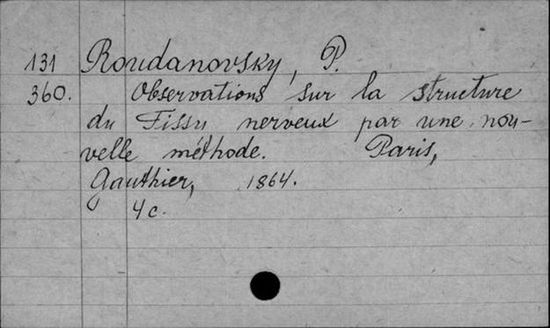 131 Roudanovsky, P.
360. Observations sur la structure
du Tissu nerveux par une nou-
velle méthode. Paris,
Gauthier, 1864.
4c.